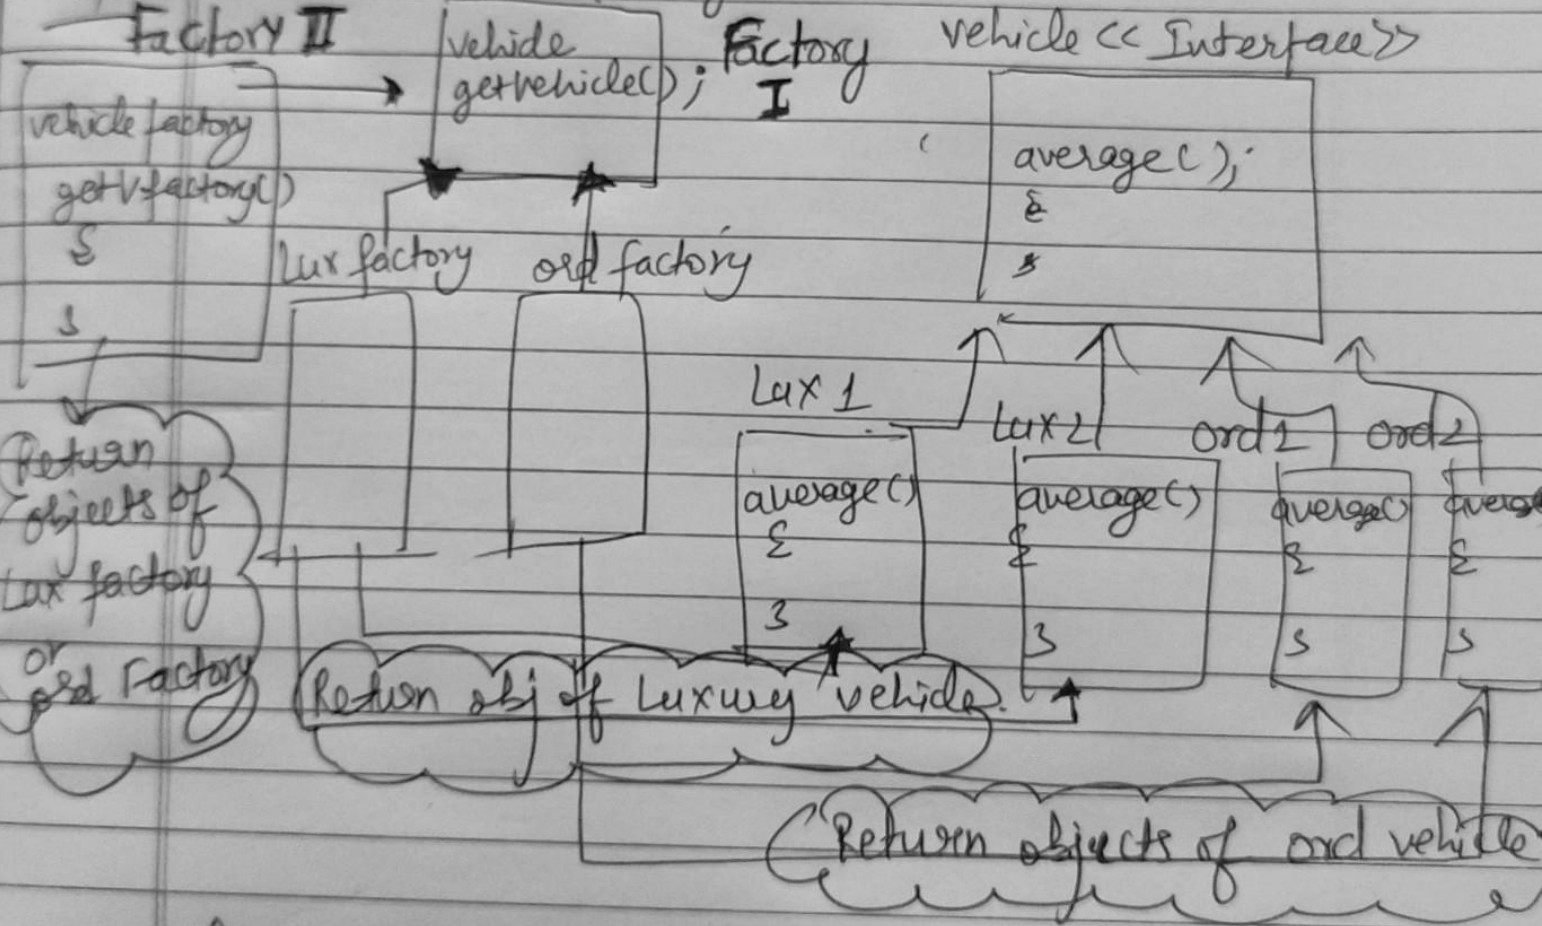 Factory II
vehicle
getvehicle();
Factory
I
vehicle << Interface>>
vehicle factory
getVfactory()
{
}
average();
{
}
Lux factory
ord factory
Lux 1
average()
{
}
Lux 2
average()
{
}
ord 1
average()
{
}
ord 2
average
{
}
Return
objects of
Lux factory
or
ord Factory
Return obj of Luxury vehicle.
Return objects of ord vehicle